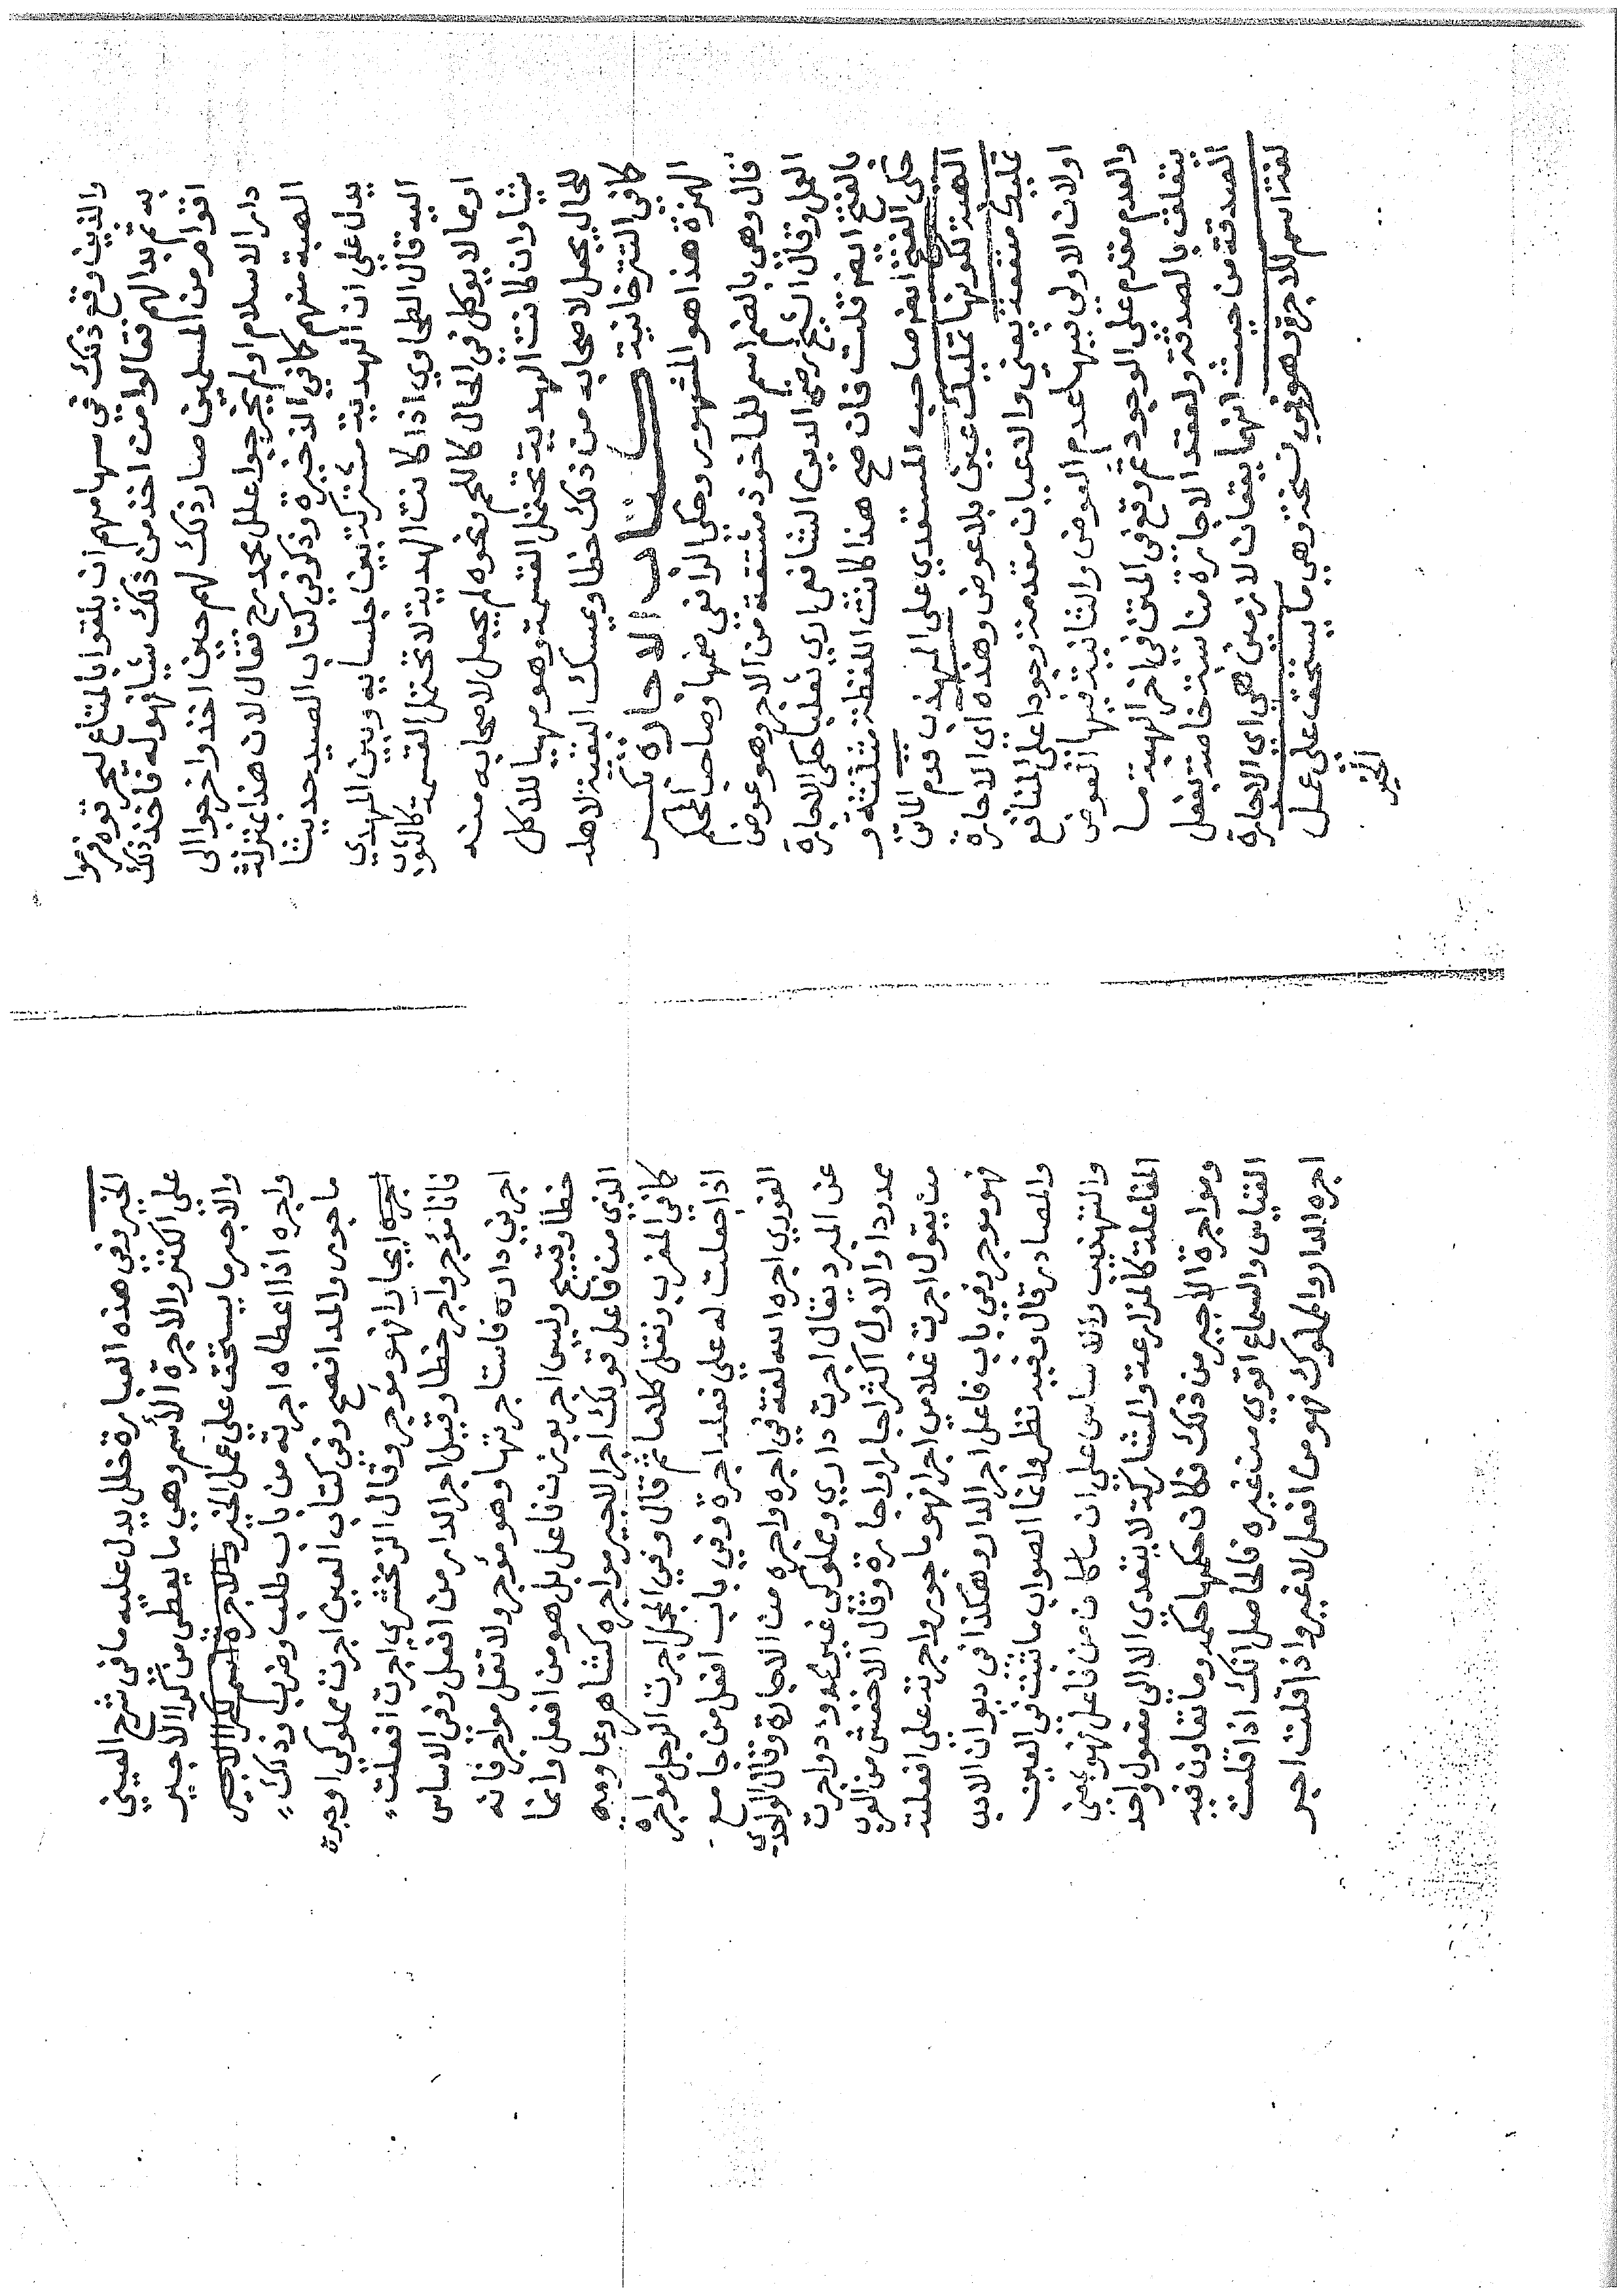 والذين وقع ذلك في سهامهم ان يلقوا بالمتاع ليحرقوه فرموا
به ثم بدا لهم فقالوا من اخذ من ذلك شيا فهو له فاخذ ذلك
اقوام من المسلمين صار ذلك لهم حين اخذوا خرجوا الى
دار الاسلام او لم يخرجوا علل محمد رح فقال لان هذا بمنزلة
الهبة منهم كافي الذخيرة وذكر في كتاب الصيد حديثا
يدل على ان الهدية مشتركة بين جلسايه وبين المهدي
اليه قال الطحاوي اذا كانت الهدية لا تحتمل القسمة كالثوب
او مما لا يوكل في الحال كاللحم ونحوه لم يجعل لاصحابه منه
شيا وان كانت الهدية تحتمل القسمة وهو مهيا للاكل
للحال يجعل لاصحابه من ذلك حظا ويمسك البقية لاهله
كافي التترخانية كتاب الاجارة بكسر
الهمزة هذا هو المشهور وحكى الرافعي ضمها وصاحب المحكم
قال وهي بالضم اسم للماخوذ مشتقة من الاجر وهو عوض
العمل وقال الشيخ رضى الدين الشافعي اري ثعلبا حكى الاجارة
بالفتح ايضم قلت فان صح هذا كانت اللفظة مثلثة و
حكى الفتح ايضم صاحب المستعدي على المهذب قدم الماتن
الهبة لكونها تمليك عين بلا عوض وهذه اى الاجارة
تمليك منفعة يعني والاعيان مقدمة وجودا على المنافع
او لان الاولى فيها عدم العوض والثانية فيها العوض
والعدم مقدم على الوجود ثم وقع في المتن في اخر الهبة ما
يتعلق بالصدقة ولعقد الاجارة مناسبة خاصة بفصل
الصدقة من حيث انهما يقعان لازمين هي اى الاجارة
لغة اسم للاجرة فهو في نسخة وهي ما يستحق على عمل
الخير
الخير وفي هذه العبارة خلل يدل عليه ما في شرح العيني
على الكنز والاجرة الاسم وهي ما يعطى من كرا الاجير
والاجر ما يستحق على عمل الخير والاجرة اسم كرا الاجير
واجره اذا اعطاه اجرته من باب طلب وضرب وذلك
ماجور والمد افصح وفي كتاب العين اجرت مملوكي اوجره
اجره ايجارا فهو مؤجر وقال الزمخشري اجرت افعلت
فانا مؤجر واجر خطا وقيل اجر الدار من افعل وفي الاساس
اجرني داره فاستاجرتها وهو مؤجر ولا تقل مواجر فانه
خطا وقبيح وليس اجر بوزن فاعل بل هو من افعل وانما
الذي من فاعل قولك اجر الاجير مواجره كشاهره وعاومه
كافي المغرب ونقل كلاما ثم قال وفي المجمل اجرت الرجل مواجرة
اذا جعلت له على فعله اجرة وفي باب افعل من جامع
الغوري اجره الله لغة في اجره واجره من الاجارة وقال الواحدي
عن المبرد يقال اجرت داري ومملوكي غير ممدود واجرت
ممدودا والاول اكثر اجارا واجارة وقال الاخفش من العرب
من يقول اجرت غلامي اجرا فهو ماجور واجرته على افعلته
فهو موجر وفي باب فاعل اجر الدار وهكذا في ديوان الادب
والمصادر قال وفيه نظر وانما الصواب ما ثبت في العين
والتهذيب والاساس على ان ما كان من فاعل فهو بمعنى
المفاعلة كالمزارعة والمشاركة لا يتعدى الا الى مفعول واحد
ومواجرة الاجير من ذلك فكان حكمها حكمه وما تفاوت فيه
القياس والسماع اقوي من غيره فالحاصل انك اذا قلت
اجره الدار والمملوك فهو من افعل لا غير واذا قلت اجير